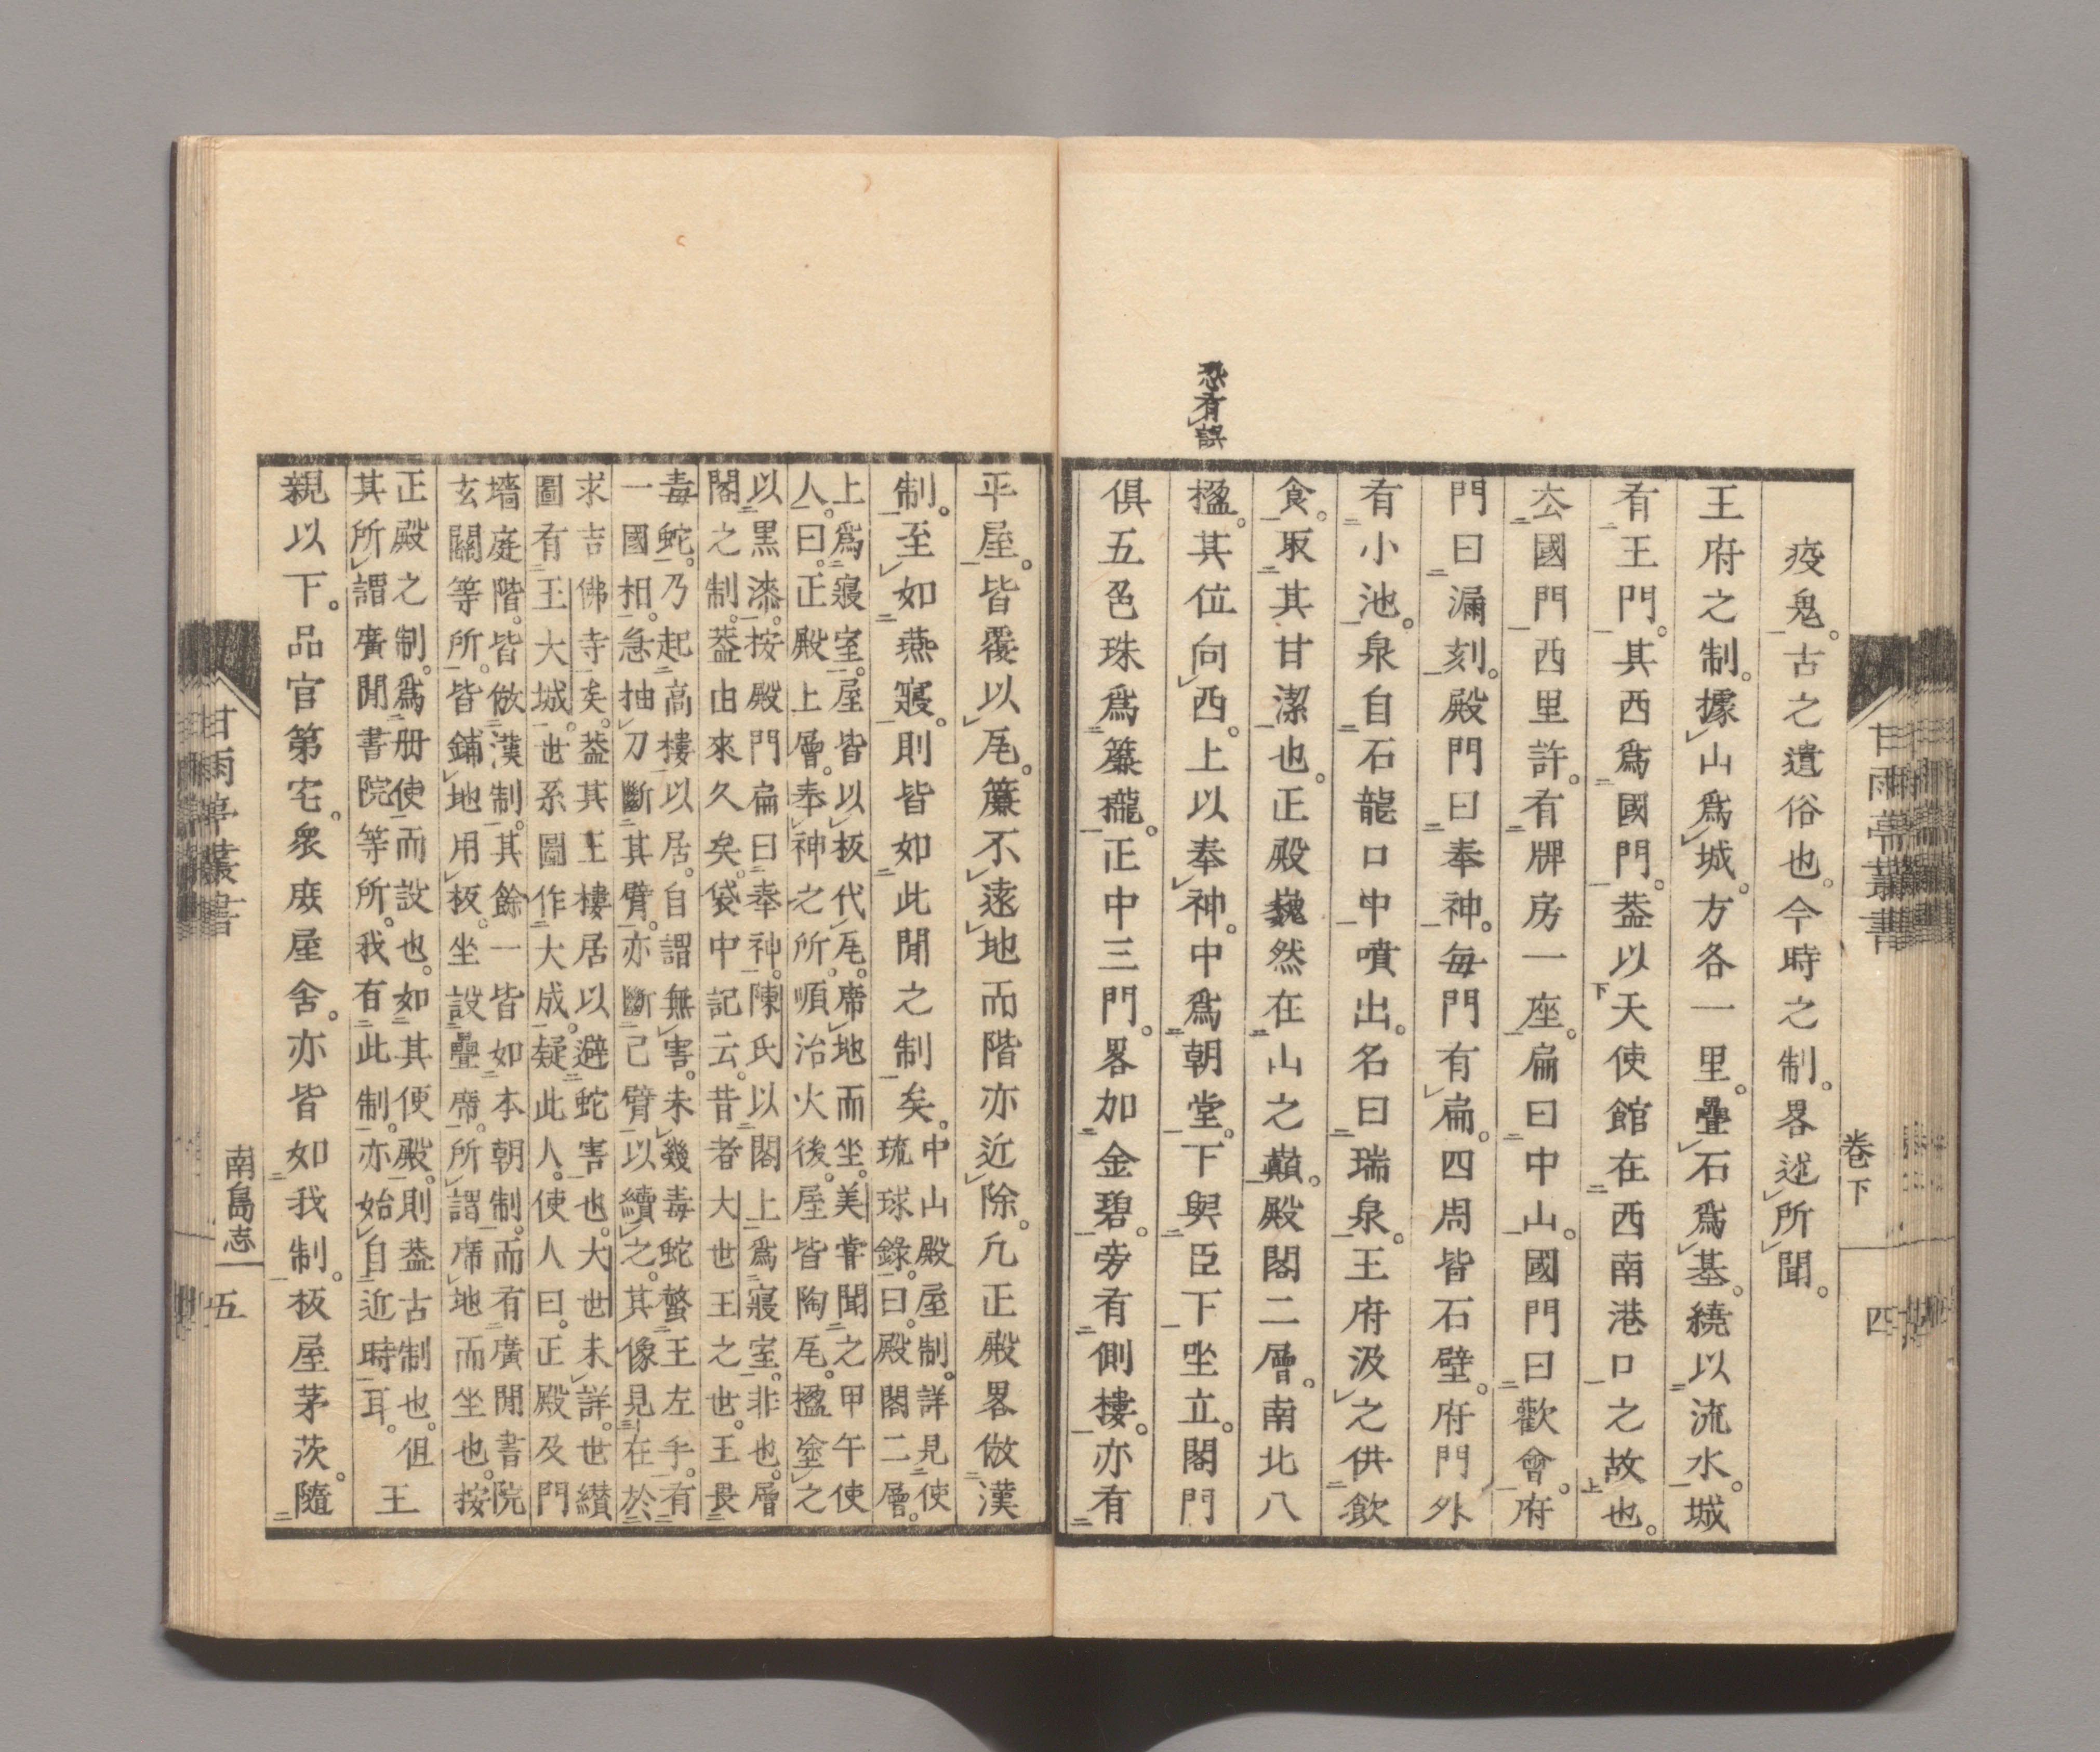 甘雨亭叢書 卷下 四
疫鬼。古之遺俗也。今時之制。畧述所聞。
王府之制。據山爲城。方各一里。疊石爲基。繞以流水。城
有王門。其西爲國門。葢以天使館在西南港口之故也。
厺國門西里許。有牌房一座。扁曰中山。國門曰歡會。府
門曰漏刻。殿門曰奉神。每門有扁。四周皆石壁。府門外
有小池。泉自石龍口中噴出。名曰瑞泉。王府汲之供飮
食。取其甘潔也。正殿巍然在山之巓。殿閣二層。南北八
恐有誤
楹。其位向西。上以奉神。中爲朝堂。下與臣下坐立。閣門
俱五色珠爲簾櫳。正中三門。畧加金碧。旁有側樓。亦有
平屋。皆覆以瓦。簷不遠地而階亦近除。凢正殿畧倣漢
制。至如燕寢。則皆如此閒之制矣。中山殿屋制。詳見使
琉球錄。曰。殿閣二層。
上爲寢室。屋皆以板代瓦。席地而坐。美甞聞之甲午使
人。曰。正殿上層。奉神之所。順治火後。屋皆陶瓦。楹塗之
以黑漆。按殿門扁曰奉神。陳氏以閣上爲寢室。非也。層
閣之制。葢由來久矣。袋中記云。昔者大世王之世。王畏
毒蛇。乃起高樓以居。自謂無害。未幾毒蛇螫王左手。有
一國相。急抽刀斷其臂。亦斷己臂以續之。其像見在於
求吉佛寺矣。葢其王樓居以避蛇害也。大世未詳。世纉
圖有玉大城。世系圖作大成。疑此人。使人曰。正殿及門
墻庭階。皆倣漢制。其餘一皆如本朝制。而有廣閒書院
玄關等所。皆鋪地用板。坐設疊席。所謂席地而坐也。按
正殿之制。爲册使而設也。如其便殿。則葢古制也。伹
其所謂廣閒書院等所。我有此制。亦始自近時耳。王
親以下。品官第宅。衆庻屋舍。亦皆如我制。板屋茅茨。隨
甘雨亭叢書 南島志 五